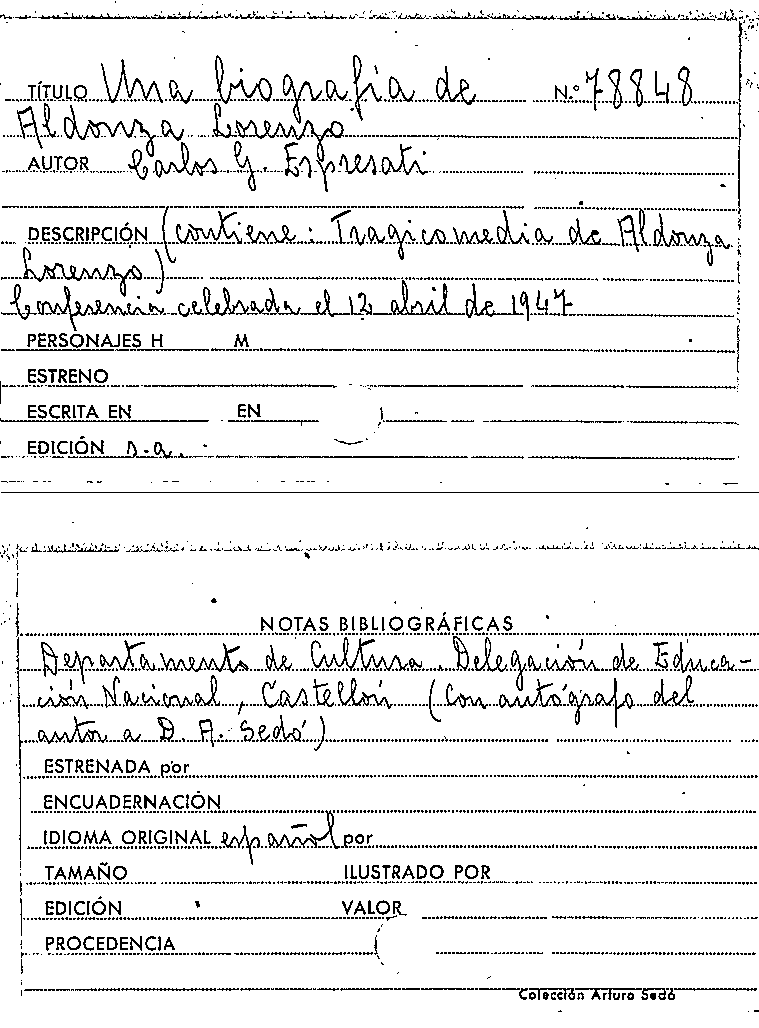 TÍTULO Una biografía de N.º 78848
Aldonza Lorenzo
AUTOR Carlos G. Espresati
DESCRIPCIÓN (contiene: Tragicomedia de Aldonza
Lorenzo)
Conferencia celebrada el 12 abril de 1947
PERSONAJES H M
ESTRENO
ESCRITA EN EN
EDICIÓN s.a.
NOTAS BIBLIOGRÁFICAS
Departamento de Cultura. Delegación de Educa-
ción Nacional, Castellón (Con autógrafo del
autor a D. A. Sedó)
ESTRENADA por
ENCUADERNACIÓN
IDIOMA ORIGINAL español por
TAMAÑO ILUSTRADO POR
EDICIÓN VALOR
PROCEDENCIA
Colección Arturo Sedó